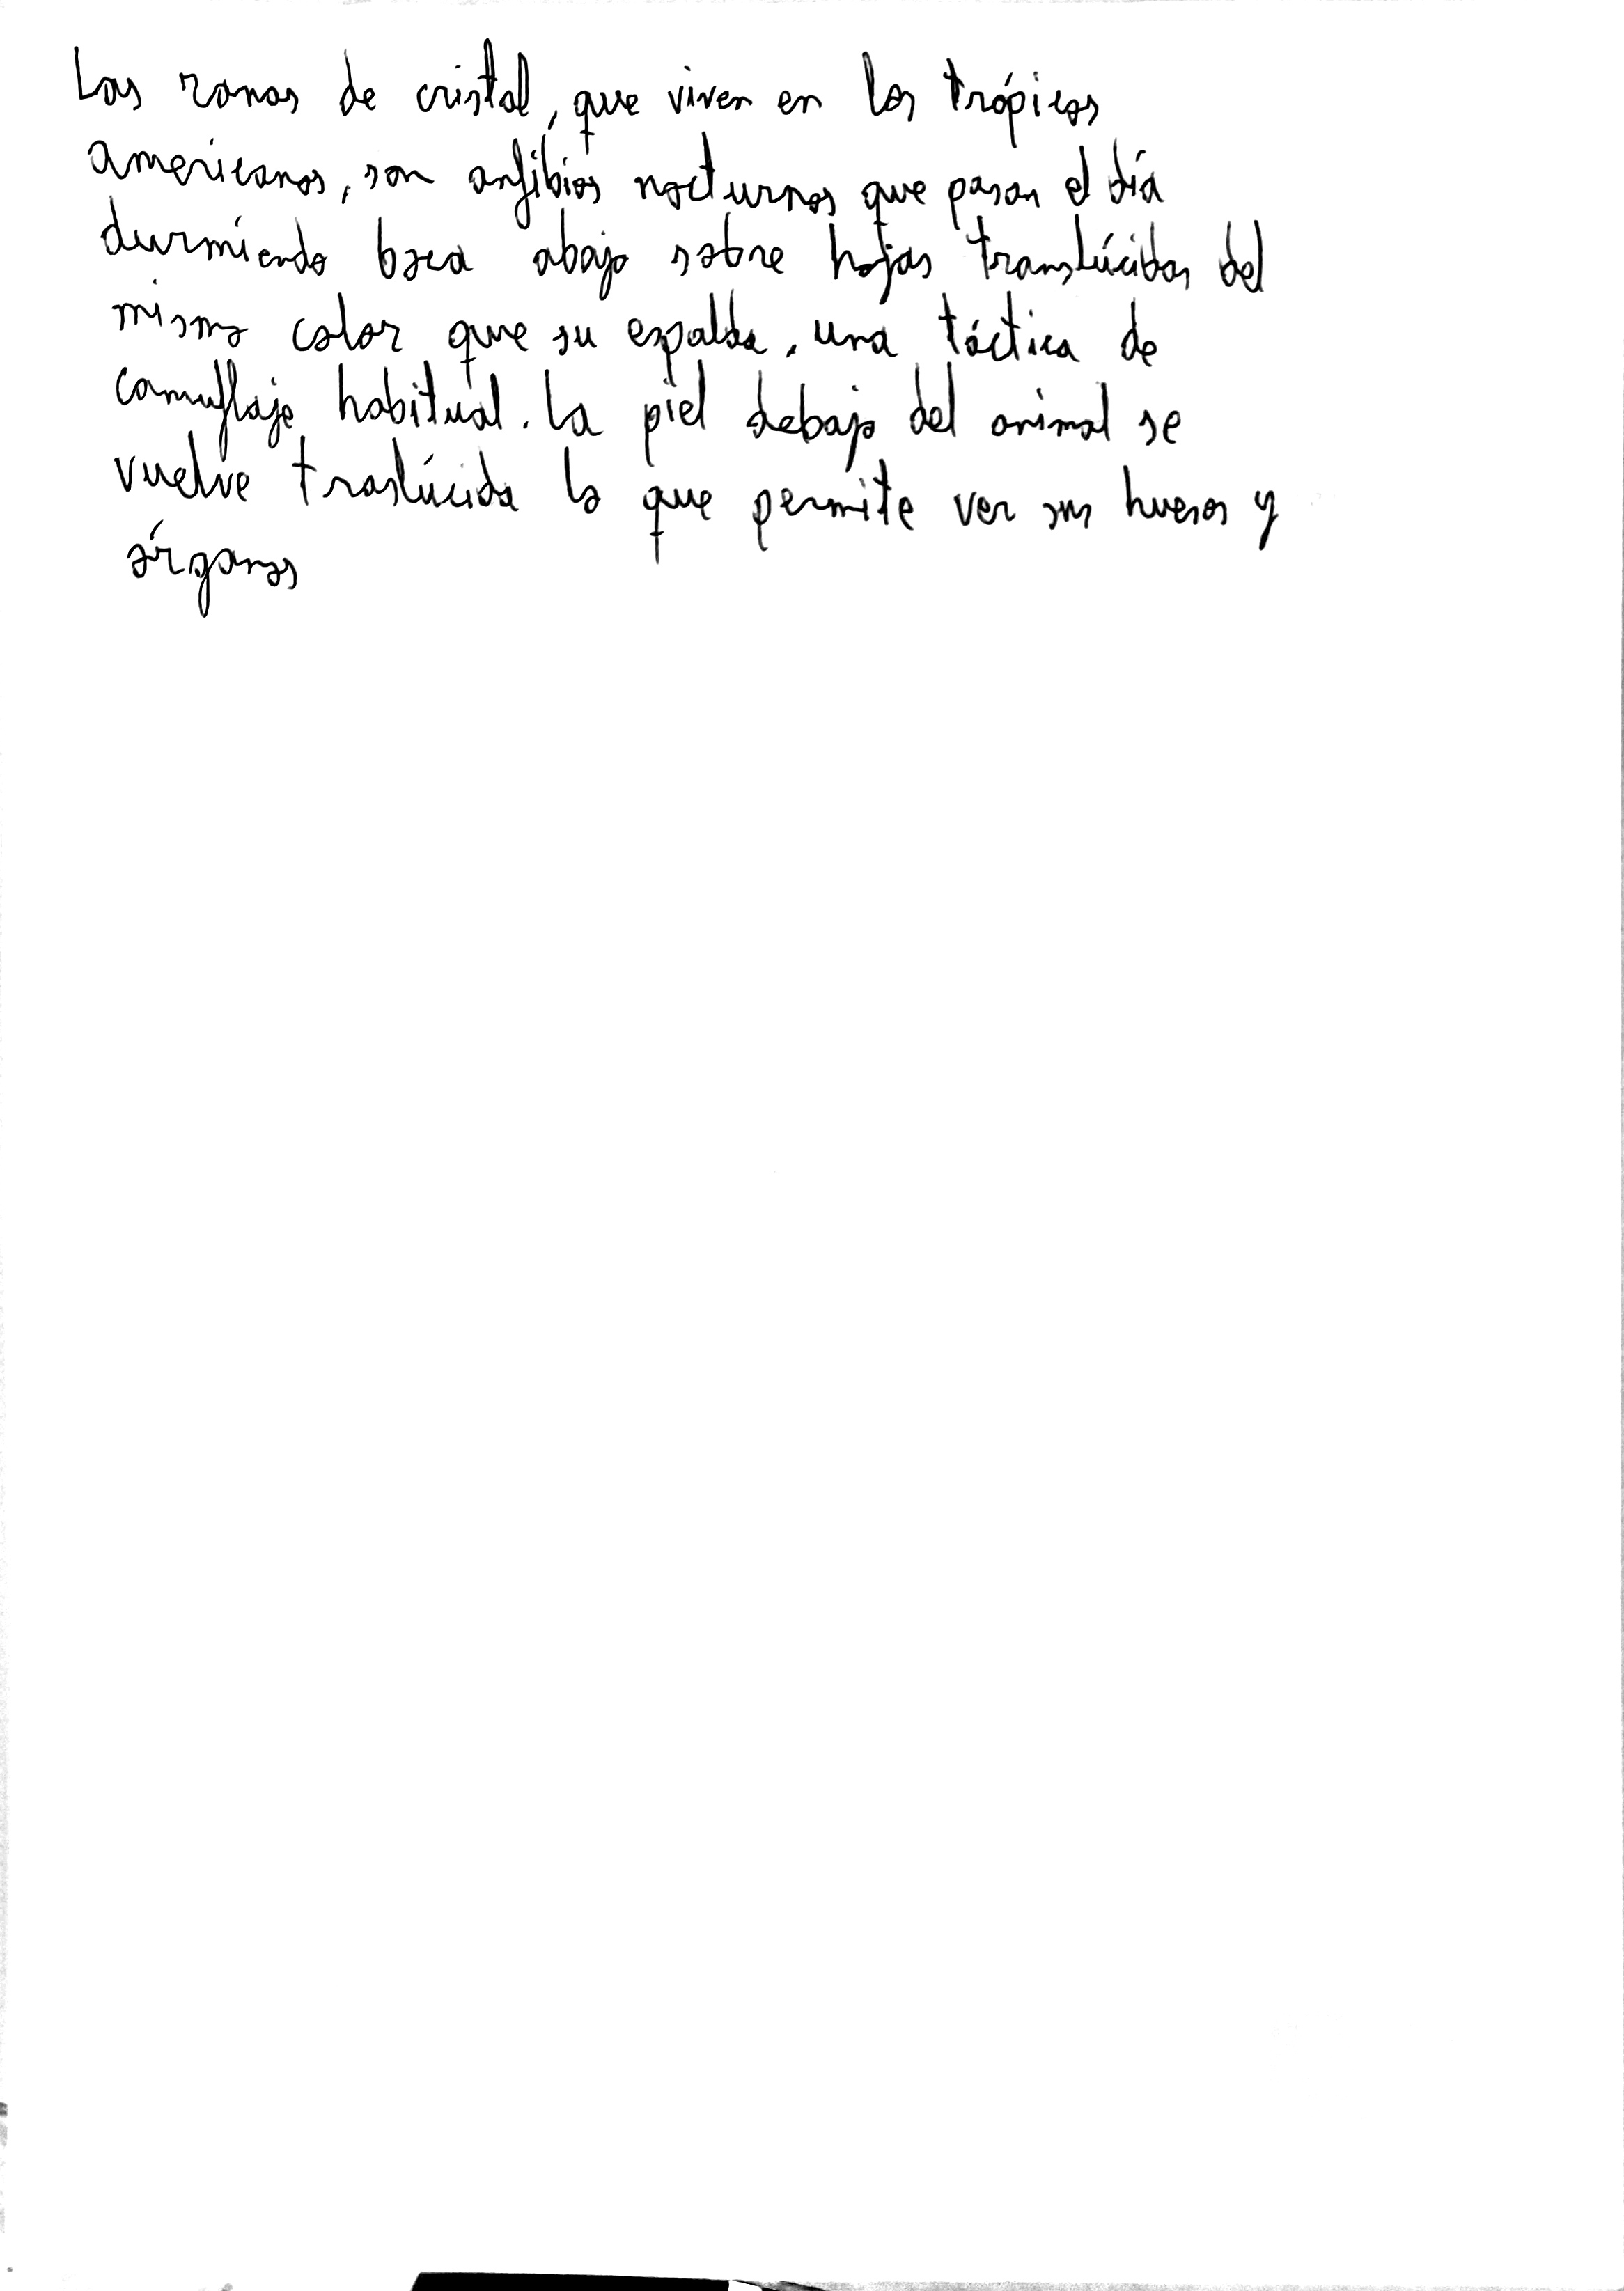 Las ranas de cristal, que viven en los trópicos
americanos, son anfibios nocturnos que pasan el día
durmiendo boca abajo sobre hojas translúcidas del
mismo color que su espalda, una táctica de
camuflaje habitual. La piel debajo del animal se
vuelve traslúcida lo que permite ver sus huesos y
órganos